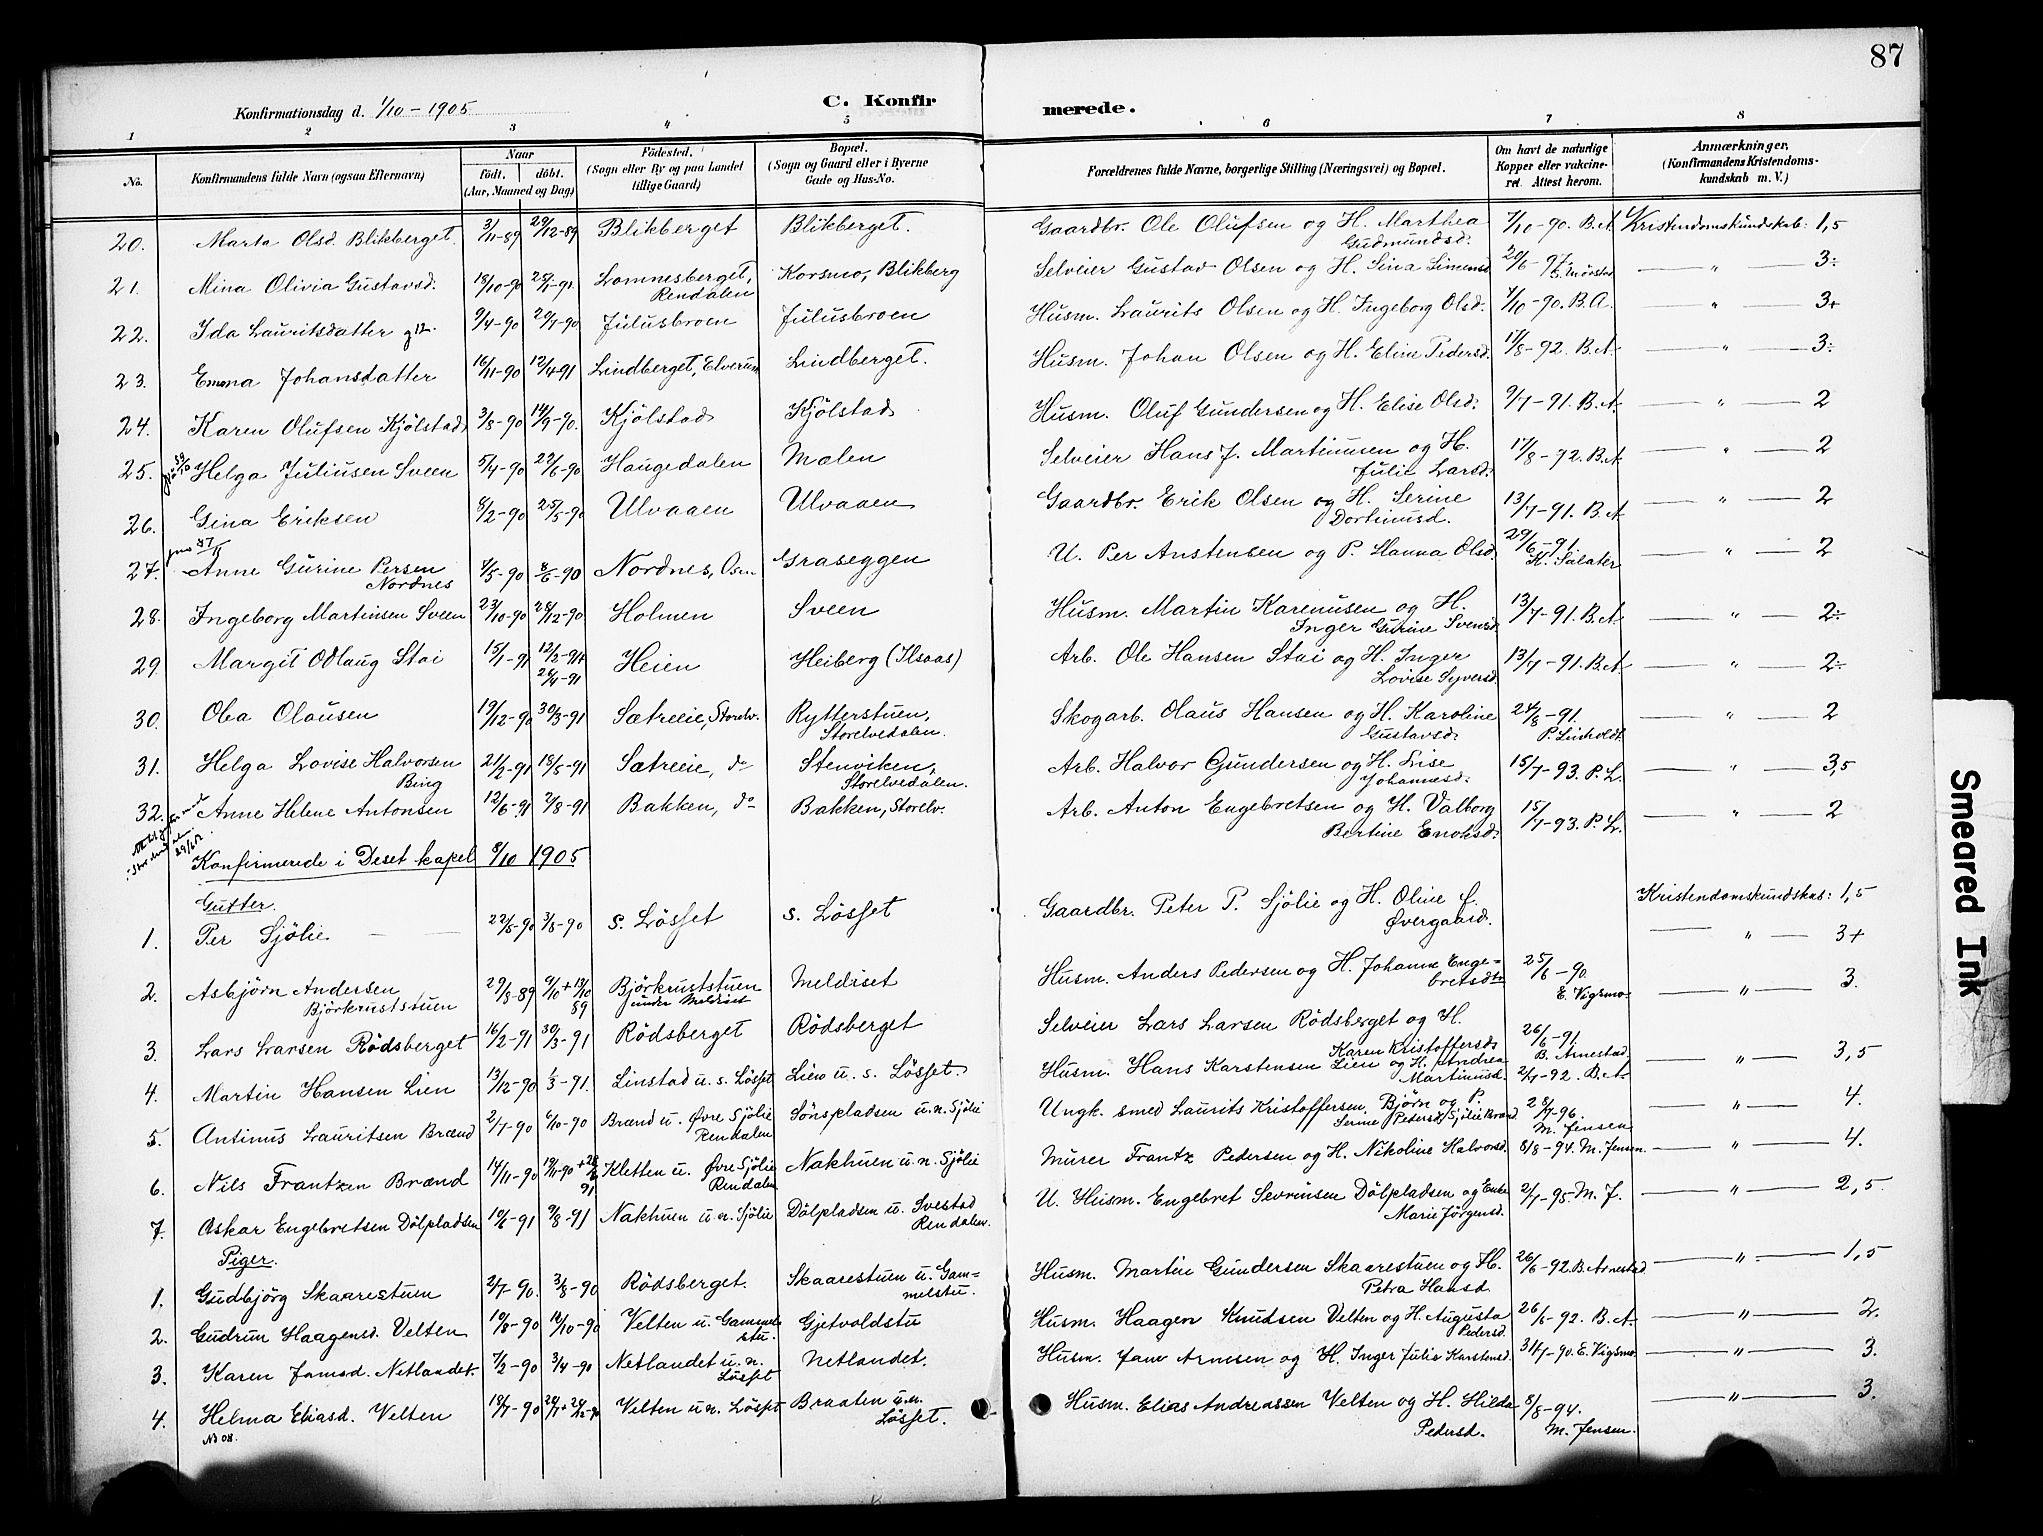 87
Konfirmationsdag d. 1/10 - 1905
C. Konfirmerede.
1 2 3 4 5 6 7 8
No.
Konfirmandens fulde Navn (ogsaa Efternavn)
Naar
födt. döbt.
(Aar, Maaned og Dag)
Födested. (Sogn eller By og paa Landet tillige Gaard)
Bopæl. (Sogn og Gaard eller i Byerne Gade og Hus-No.
Forældrenes fulde Navne, borgerlige Stilling (Næringsvei) og Bopæl.
Om havt de naturlige Kopper eller vakcineret. Attest herom.
Anmærkninger. (Konfirmandens Kristendomskundskab m. V.)
20. Marta Olsd. Blikberget. 3/11-89 29/12-89 Blikberget Blikberget. Gaardbr. Ole Olufsen og H. Marthea Gudmundsd. 7/10-90. B.A. Kristendomskundskab: 1,5
21. Mina Olivia Gustavsd. 18/10-90 25/1-91. Lomnesberget, Rendalen Korsmo, Blikberg Selveier Gustav Olsen og H. Sina Simensd. 20/6-97. " 3÷
22. Ida Lauritsdatter 9/4-90 20/7-90 Julusbroen Julusbroen Husm. Laurits Olsen og H. Ingeborg Olsd. 7/10-90. B.A. " 3+
23. Emma Johansdatter 16/11-90 12/4-91 Lindberget, Elverum Lindberget. Husm. Johan Olsen og H. Eline Pedersd. 17/8-92. B.A. " 3÷
24. Karen Olufsen Kjölstad 3/8-90 14/9-90. Kjölstad Kjölstad Husm. Oluf Gundersen og H. Elise Olsd. 9/7-91. B.A. " 2
25. Helga Juliusen Sveen 5/4-90 29/6-90 Haugedalen Malen Selveier Hans J. Martinusen og H. Julie Larsd. 17/8-92. B.A. " 2
26. Gina Eriksen 8/2-90 25/5-90 Ulvaaen Ulvaaen Gaardbr. Erik Olsen og H. Serine Dortinusd. 13/7-91. B.A. " 2
27. Anne Gurine Persen Nordnes 4/5-90 8/6-90 Nordnes, Osen Graseggen U. Per Anstensen og P. Hanna Olsd. 29/6-91 H. Salater " 2
28. Ingeborg Martinsen Sveen 23/10-90 28/12-90. Holmen Sveen Husm. Martin Karenusen og H. Inger Gurine Svensd. 13/7-91. B.A. " 2÷
29. Margit Odlaug Stai 15/1-91 12/2-91+ 26/4-91 Heien Heiberg (Ilsaas) Arb. Ole Hansen Stai og H. Inger Lovise Syversd. 13/7-91. B.A. " 2÷
30. Olea Olausen 19/12-90 30/3-91 Sætreeie, Storelv. Rytterstuen, Storelvedalen. Skogarb. Olaus Hansen og H. Karoline Gustavsd. 24/8-91. P. Linholdt " 2
31. Helga Lovise Halvorsen Bing 21/2-91 18/5-91 Sætreeie, do Stenviken, Storelvedalen. Arb. Halvor Gundersen og H. Lise Johannesd. 15/7-93. P.L. " 3,5
32. Anne Helene Antonsen 12/6-91 2/8-91 Bakken, do Bakken, Storelv. Arb. Anton Engebretsen og H. Valborg Bertine Enoksd. 15/7-93. P.L. " 2
Konfirmerede i Deset kapel 8/10 1905
Gutter.
1. Per Sjölie 22/5-90 3/8-90 s. Lösset s. Lösset Gaardbr. Peter P. Sjölie og H. Oline J. Övergaard. Kristendomskundskab: 1,5
" 3+
2. Asbjörn Andersen Björkruststuen 29/8-89 6/10+13/10 89 Björkruststuen under Meldiset Meldiset Husm. Anders Pedersen og H. Johanne Engebretsdtr 25/6-90. E. Vigsmo. " 3.
3. Lars Larsen Rödsberget 16/2-91 30/3-91 Rödsberget Rödsberget Selveier Lars Larsen Rödsberget og H. Karen Kristoffersd. 26/6-91. B. Arnestad. " 3,5
4. Martin Hansen Lien 13/12-90 1/3-91. Linstad u. s. Lösset Lien u. s. Lösset. Husm. Hans Karstensen Lien og H. Andrea Martinusd. 2/7-92. B.A. " 4.
5. Antinus Lauritsen Brænd 2/7-90 6/10-90 Brænd u. Övre Sjölie Rendalen Sönspladsen u. n. Sjölie Ungk. smed Laurits Kristoffersen Björn og P. Serine Pedersd. Sjölie Brænd. 28/7-96. M. Jensen " 4.
6. Nils Frantzen Brænd 14/11-90 Kletten u. Övre Sjölie Rendalen Nakhuen u. n. Sjölie Murer Frantz Pedersen og H. Nikoline Halvorsd. 8/8-94. M. Jensen. " 2,5
7. Oskar Engebretsen Dölpladsen 10/6-91 9/8-91 Nakhuen u. n. Sjölie Dölpladsen u. Svestad Rendalen. U. Husm. Engebret Sevrinsen Dölpladsen og Enke Marie Jörgensd. 2/7-95 M.J.
Piger.
1. Gudbjörg Skaarestuen 2/7-90. 3/8-90 Rödsberget. Skaarestuen u. Gammelstu. Husm. Martin Gundersen Skaarestuen og H. Petra Hansd. 26/6-92. B. Arnestad " 1,5
2. Gudrun Haagensd. Velten 10/8-90 12/10-90 Velten u. Gammelstu. Gjetvoldstu Husm. Haagen Knudsen Velten og H. Augusta Pedersd. 26/6-92. B.A. " 2.
3. Karen Jamsd. Netlandet. 7/2-90 3/4-90 Netlandet u. n. Lösset Netlandet. Husm. Jam Arnesen og H. Inger Julie Karstensd. 31/7-90. E. Vigsmo. " 3.
4. Helma Eliasd. Velten 19/7-90 Velten u. n. Lösset Braaten u. n. Lösset. Husm. Elias Andreassen Velten og H. Hilda Pedersd. 8/8-94. M. Jensen. " 3.
Smeared Ink